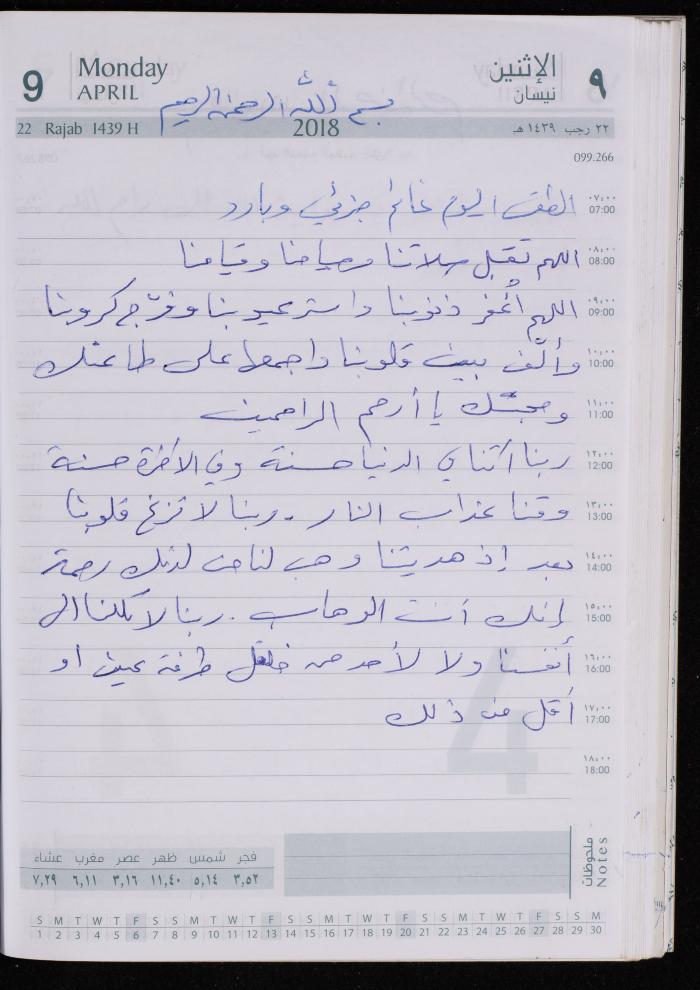 9 Monday APRIL الإثنين نيسان ٩
بسم الله الرحمن الرحيم
22 Rajab 1439 H 2018 ٢٢ رجب ١٤٣٩ هـ
099.266
الطقس اليوم غائم جزئي وبارد ٠٧:٠٠ 07:00
اللهم تقبل صلاتنا وصيامنا وقيامنا ٠٨:٠٠ 08:00
اللهم أغفر ذنوبنا واستر عيوبنا وفرّج كروبنا ٠٩:٠٠ 09:00
وألّف بين قلوبنا واجمعها على طاعتك ١٠:٠٠ 10:00
ومحبتك يا أرحم الراحمين ١١:٠٠ 11:00
ربنا آتنا في الدنيا حسنة وفي الآخرة حسنة ١٢:٠٠ 12:00
وقنا عذاب النار . ربنا لا تزغ قلوبنا ١٣:٠٠ 13:00
بعد إذ هديتنا وهب لنا من لدنك رحمة ١٤:٠٠ 14:00
إنك أنت الوهاب . ربنا لا تكلنا الى ١٥:٠٠ 15:00
أنفسنا ولا لأحد من خلقك طرفة عين او ١٦:٠٠ 16:00
أقل من ذلك ١٧:٠٠ 17:00
١٨:٠٠ 18:00
ملحوظات Notes
فجر شمس ظهر عصر مغرب عشاء
٣,٥٢ ٥,١٤ ١١,٤٠ ٣,١٦ ٦,١١ ٧,٢٩
S M T W T F S S M T W T F S S M T W T F S S M T W T F S S M
1 2 3 4 5 6 7 8 9 10 11 12 13 14 15 16 17 18 19 20 21 22 23 24 25 26 27 28 29 30